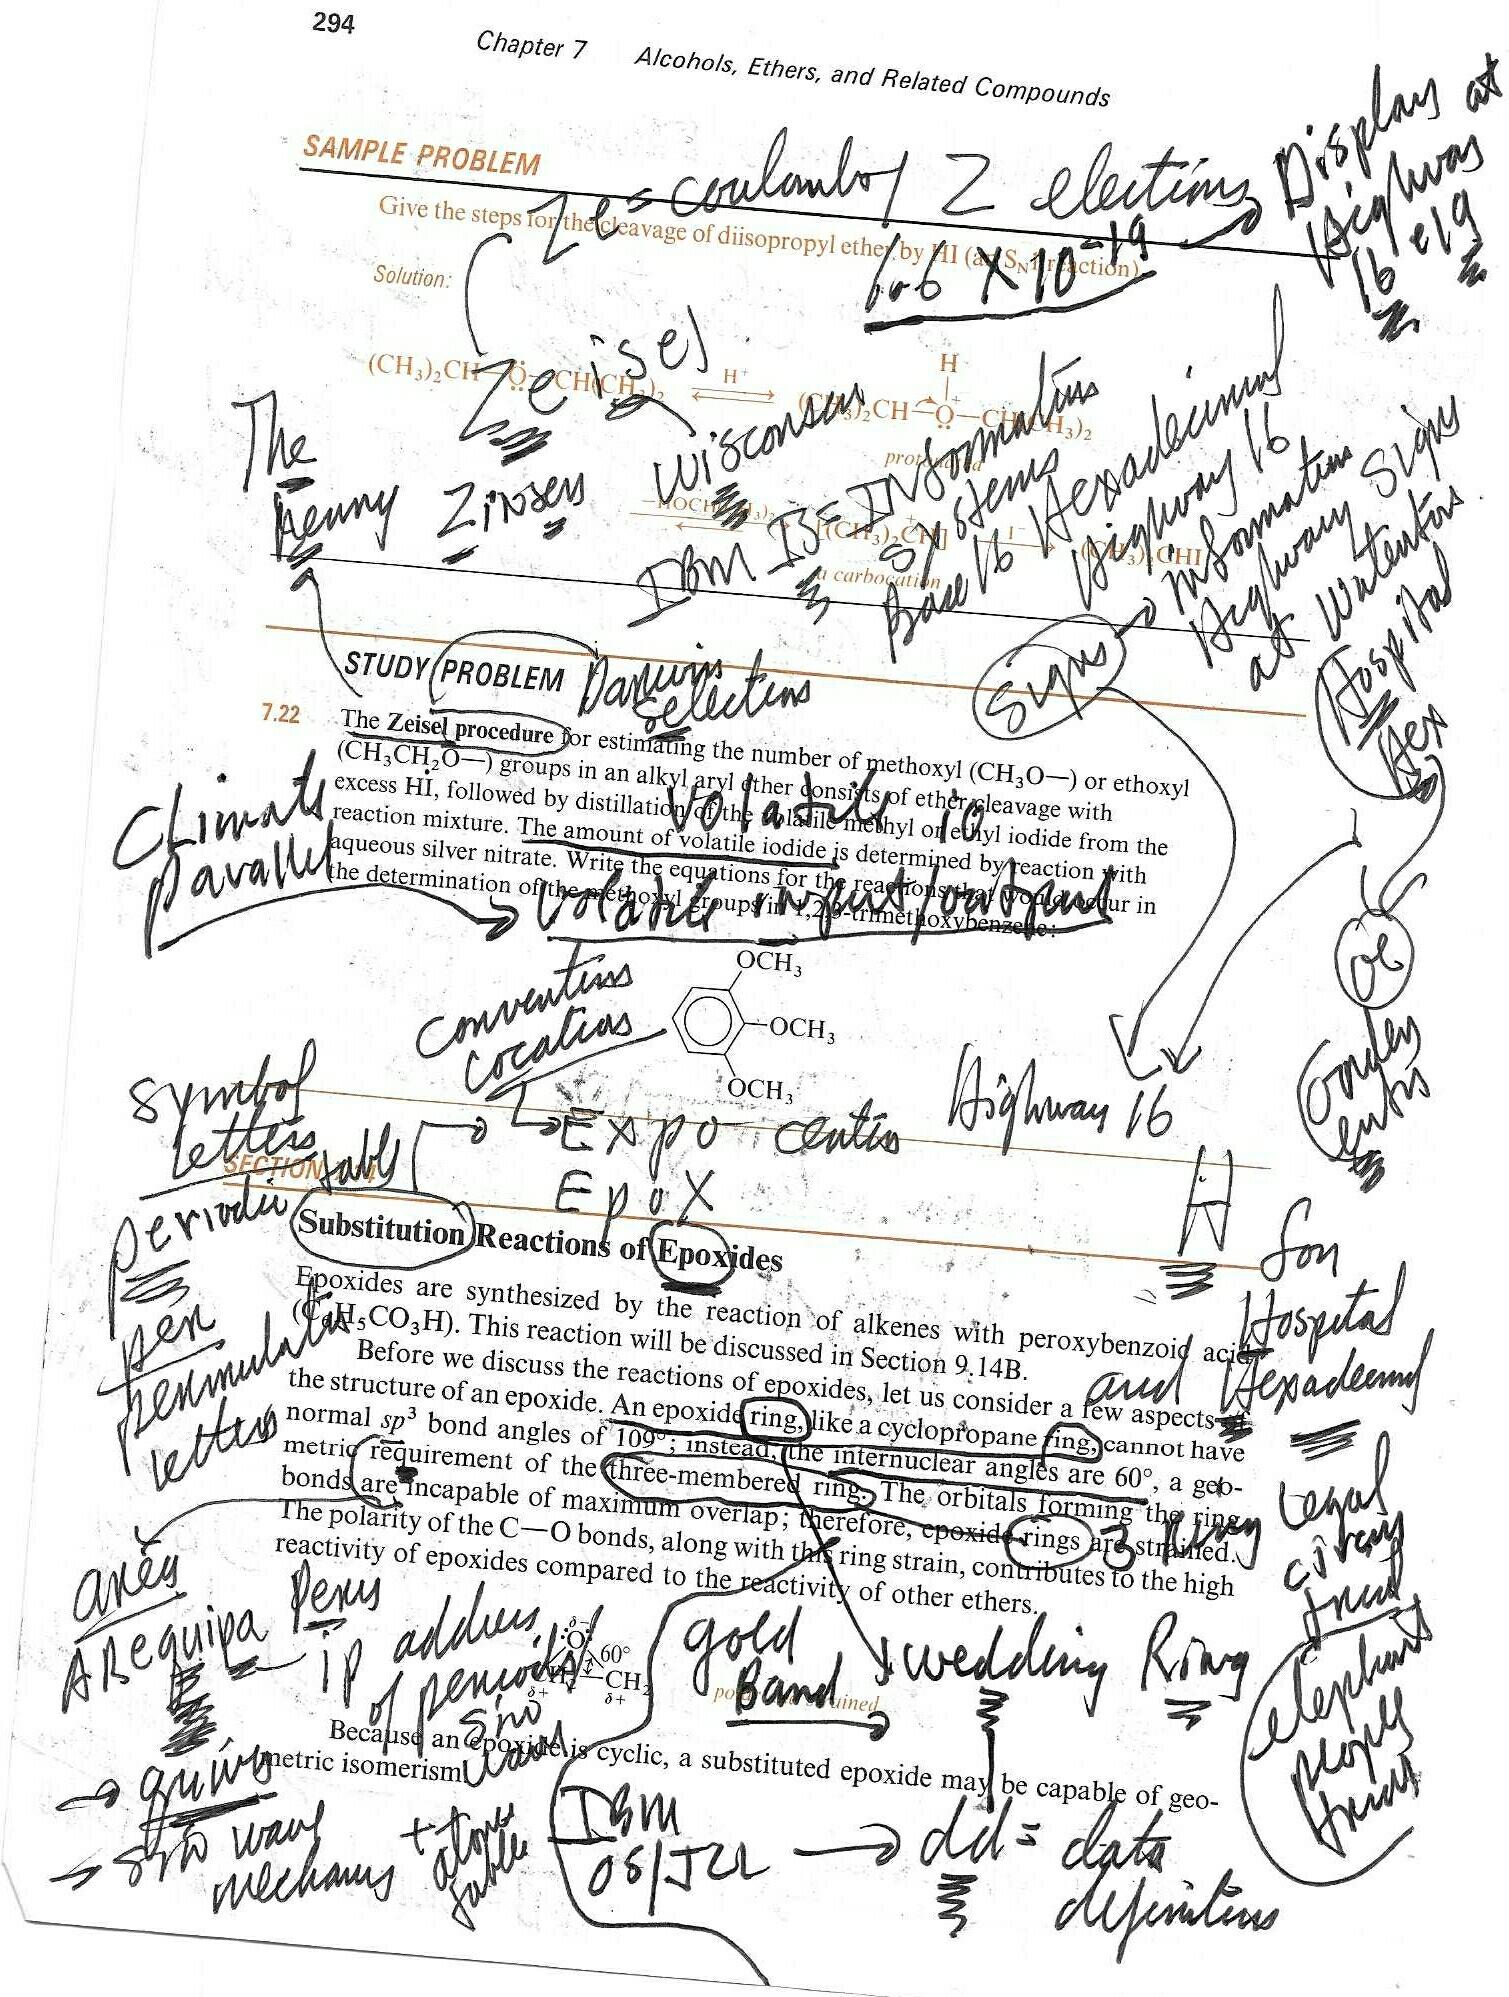 294
Chapter 7 Alcohols, Ethers, and Related Compounds
Displays at
Highway
16 e19
SAMPLE PROBLEM
Ze = coulomb of Z elections
Give the steps for the cleavage of diisopropyl ether by HI (an SN1 reaction).
1.6 X 10-19
Solution:
Zeisel
(CH3)2CH—O—CH(CH3)2 H+ (CH3)2CH—O—CH(CH3)2
H
+
protonated
The
Henny Zinsers
Wisconsin
IBM IS = Information
Systems
Base 16 Hexadecimal
Highway 16
information
Highway Signs
at Watertons
Hospital
Hex
—HOCH(CH3)2 [(CH3)2CH] I− (CH3)2CHI
+
a carbocation
Signs
STUDY PROBLEM
Darwins
selections
7.22 The Zeisel procedure for estimating the number of methoxyl (CH3O—) or ethoxyl
(CH3CH2O—) groups in an alkyl aryl ether consists of ether cleavage with
excess HI, followed by distillation of the volatile methyl or ethyl iodide from the
reaction mixture. The amount of volatile iodide is determined by reaction with
aqueous silver nitrate. Write the equations for the reactions that would occur in
the determination of the methoxyl groups in 1,2,3-trimethoxybenzene:
Climate
parallel
Volatile io
Volatile input/output
OCH3
OCH3
OCH3
convention
location
symbol
letters
Expo centers
Highway 16
Epox
periodic table
pen
permulate
letters
H
for
Hospital
and Hexadecimal
SECTION 7.14
Substitution Reactions of Epoxides
Epoxides are synthesized by the reaction of alkenes with peroxybenzoic acid
(C6H5CO3H). This reaction will be discussed in Section 9.14B.
Before we discuss the reactions of epoxides, let us consider a few aspects of
the structure of an epoxide. An epoxide ring, like a cyclopropane ring, cannot have
normal sp3 bond angles of 109°; instead, the internuclear angles are 60°, a geo-
metric requirement of the three-membered ring. The orbitals forming the ring
bonds are incapable of maximum overlap; therefore, epoxide rings are strained.
The polarity of the C—O bonds, along with this ring strain, contributes to the high
reactivity of epoxides compared to the reactivity of other ethers.
3 Ring
Legal
circus
trial
elephant
peoples
trial
area
Arequipa Perus
ip address
of pencils
gold
Band
wedding Ring
δ−
O
60°
CH2—CH2
δ+ δ+
polar and strained
Because an epoxide is cyclic, a substituted epoxide may be capable of geo-
metric isomerism.
sno
wave
IBM
OS/JCL
dd = data
definitions
wave
mechanics